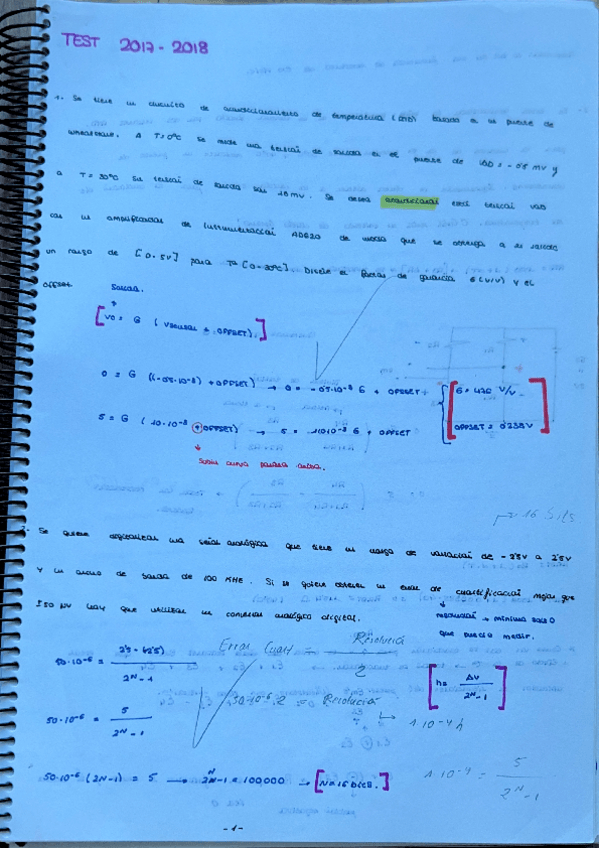 TEST 2017-2018
1. Se tiene un circuito de acondicionamiento de temperatura (RTD) basado en un puente de
wheatstone. A T=0ºC se mide una tensión de salida en el puente de = -0'5 mV y
a T = 30ºC su tensión de salida son 10 mV. Se desea acondicionar esta tensión
con un amplificador de instrumentación AD620 de modo que se obtenga a su salida
un rango de [0-5V] para Tª [0-30ºC]. Diseñe el factor de ganancia G (V/V) y el
OFFSET
Salida.
[Vo = G (Vsensor + OFFSET).]
0 = G ((-0'5·10⁻³) + OFFSET) → 0 = -0'5·10⁻³ G + OFFSET
5 = G (10·10⁻³ + OFFSET) → 5 = 10·10⁻³ G + OFFSET
[G = 476 V/V
OFFSET = 0'238V]
Subir curva para arriba.
16 bits
2- Se quiere digitalizar una señal analógica que tiene un rango de variación de -2'5V a 2'5V
y un ancho de banda de 100 KHz. Si se quiere obtener un error de cuantificación mejor que
±50 µV hay que utilizar un conversor analógico digital.
resolución → mínimo valor
que puedo medir.
Error Cuant = Resolució / 2
50·10⁻⁶ = 2'5-(-2'5) / 2^N-1
[h = ΔV / 2^N-1]
50·10⁻⁶·2 = Resolució
→ 1·10⁻⁴
50·10⁻⁶ = 5 / 2^N-1
1·10⁻⁴ = 5 / 2^N-1
50·10⁻⁶ (2^N-1) = 5 → 2^N-1 = 100,000 → [N=16 bits.]
-1-